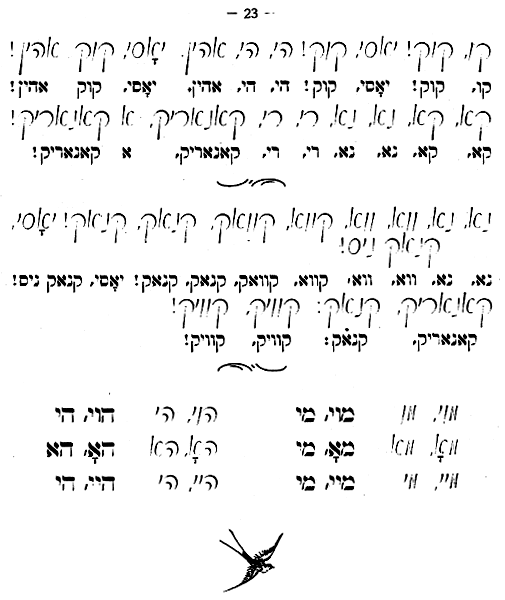 — 23 —
קו, קוק! יאָסי, קוק! הי, הי, אהין, יאָסי, קוק אהין!
קו, קוק! יאָסי, קוק! הי, הי, אהין, יאָסי, קוק אהין!
קא, קא, נא, נא, רי, רי, קאנאריק, א קאנאריק!
קא, קא, נא, נא, רי, רי, קאנאריק, א קאנאריק!
נא, נא, ווא, ווא, קווא, קוואק, קנאק, קנאק! יאָסי,
קנאק ניס!
נא, נא, ווא, ווא, קווא, קוואק, קנאק, קנאק! יאָסי, קנאק ניס!
קאנאריק, קנאק: קוויק, קוויק!
קאנאריק, קנאק: קוויק, קוויק!
מוי, מו מוי, מי הוי, הי הוי, הי
מאָ, מא מאָ, מי האָ, הא האָ, הא
מיי, מי מיי, מי היי, הי היי, הי